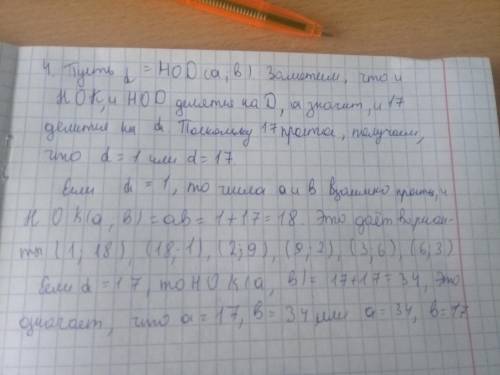 4. Пусть d = НОD (а, в). Заметим, что и
НОК, и НОD делятся на D, а значит, и 17
делится на d. Поскольку 17 простое, получаем,
что d = 1 или d = 17
Если d = 1, то числа а и в взаимно просты, и
НОК(а, в) = ав = 1+17 = 18. Это даёт вариан-
ты (1; 18), (18; 1), (2; 9), (9; 2), (3; 6), (6; 3)
Если d = 17, то НОК(а, в) = 17+17 = 34, Это
означает, что а = 17, в = 34 или а = 34, в = 17